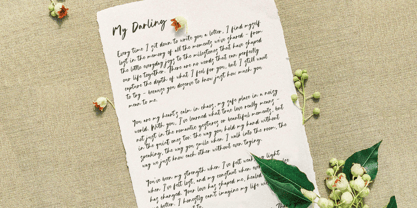 My Darling
Every time I sit down to write you a letter, I find myself
lost in the memory of all the moments we've shared - from
the little everyday joys to the milestones that have shaped
our life together. There are no words that can perfectly
capture the depth of what I feel for you, but I still want
to try - because you deserve to know just how much you
mean to me.
You are my heart's calm in chaos, my safe place in a noisy
world. With you, I've learned what true love really means -
not just in the romantic gestures or beautiful moments, but
in the quiet ones too. The way you hold my hand without
speaking, the way you smile when I walk into the room, the
way we just know each other without even trying.
You've been my strength when I've felt weak, my light
when I've felt lost, and my constant when
has changed. Your love has shaped me, healed
better. I honestly can't imagine my life